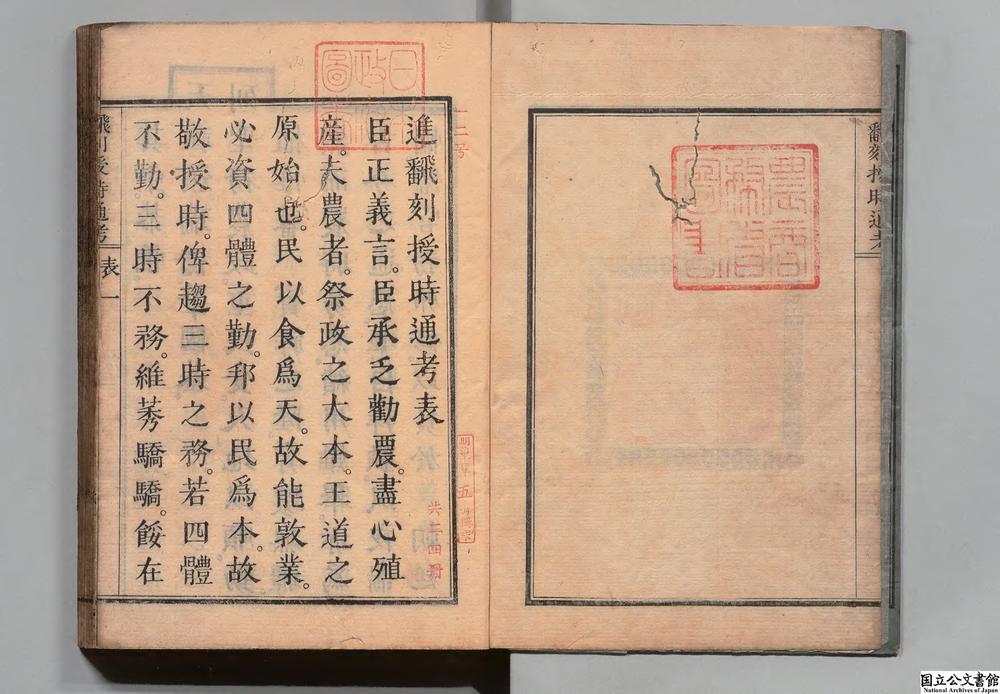 飜刻授時通考
農商務省圖書
日本政府圖書
進飜刻授時通考表
臣正義言。臣承乏勸農。盡心殖
產。夫農者。祭政之大本。王道之
原始也。民以食爲天。故能敦業。
必資四體之勤。邦以民爲本。故
敬授時。俾趨三時之務。若四體
不勤。三時不務。維莠驕驕。餒在
飜刻授時通考 表 一
国立公文書館
National Archives of Japan